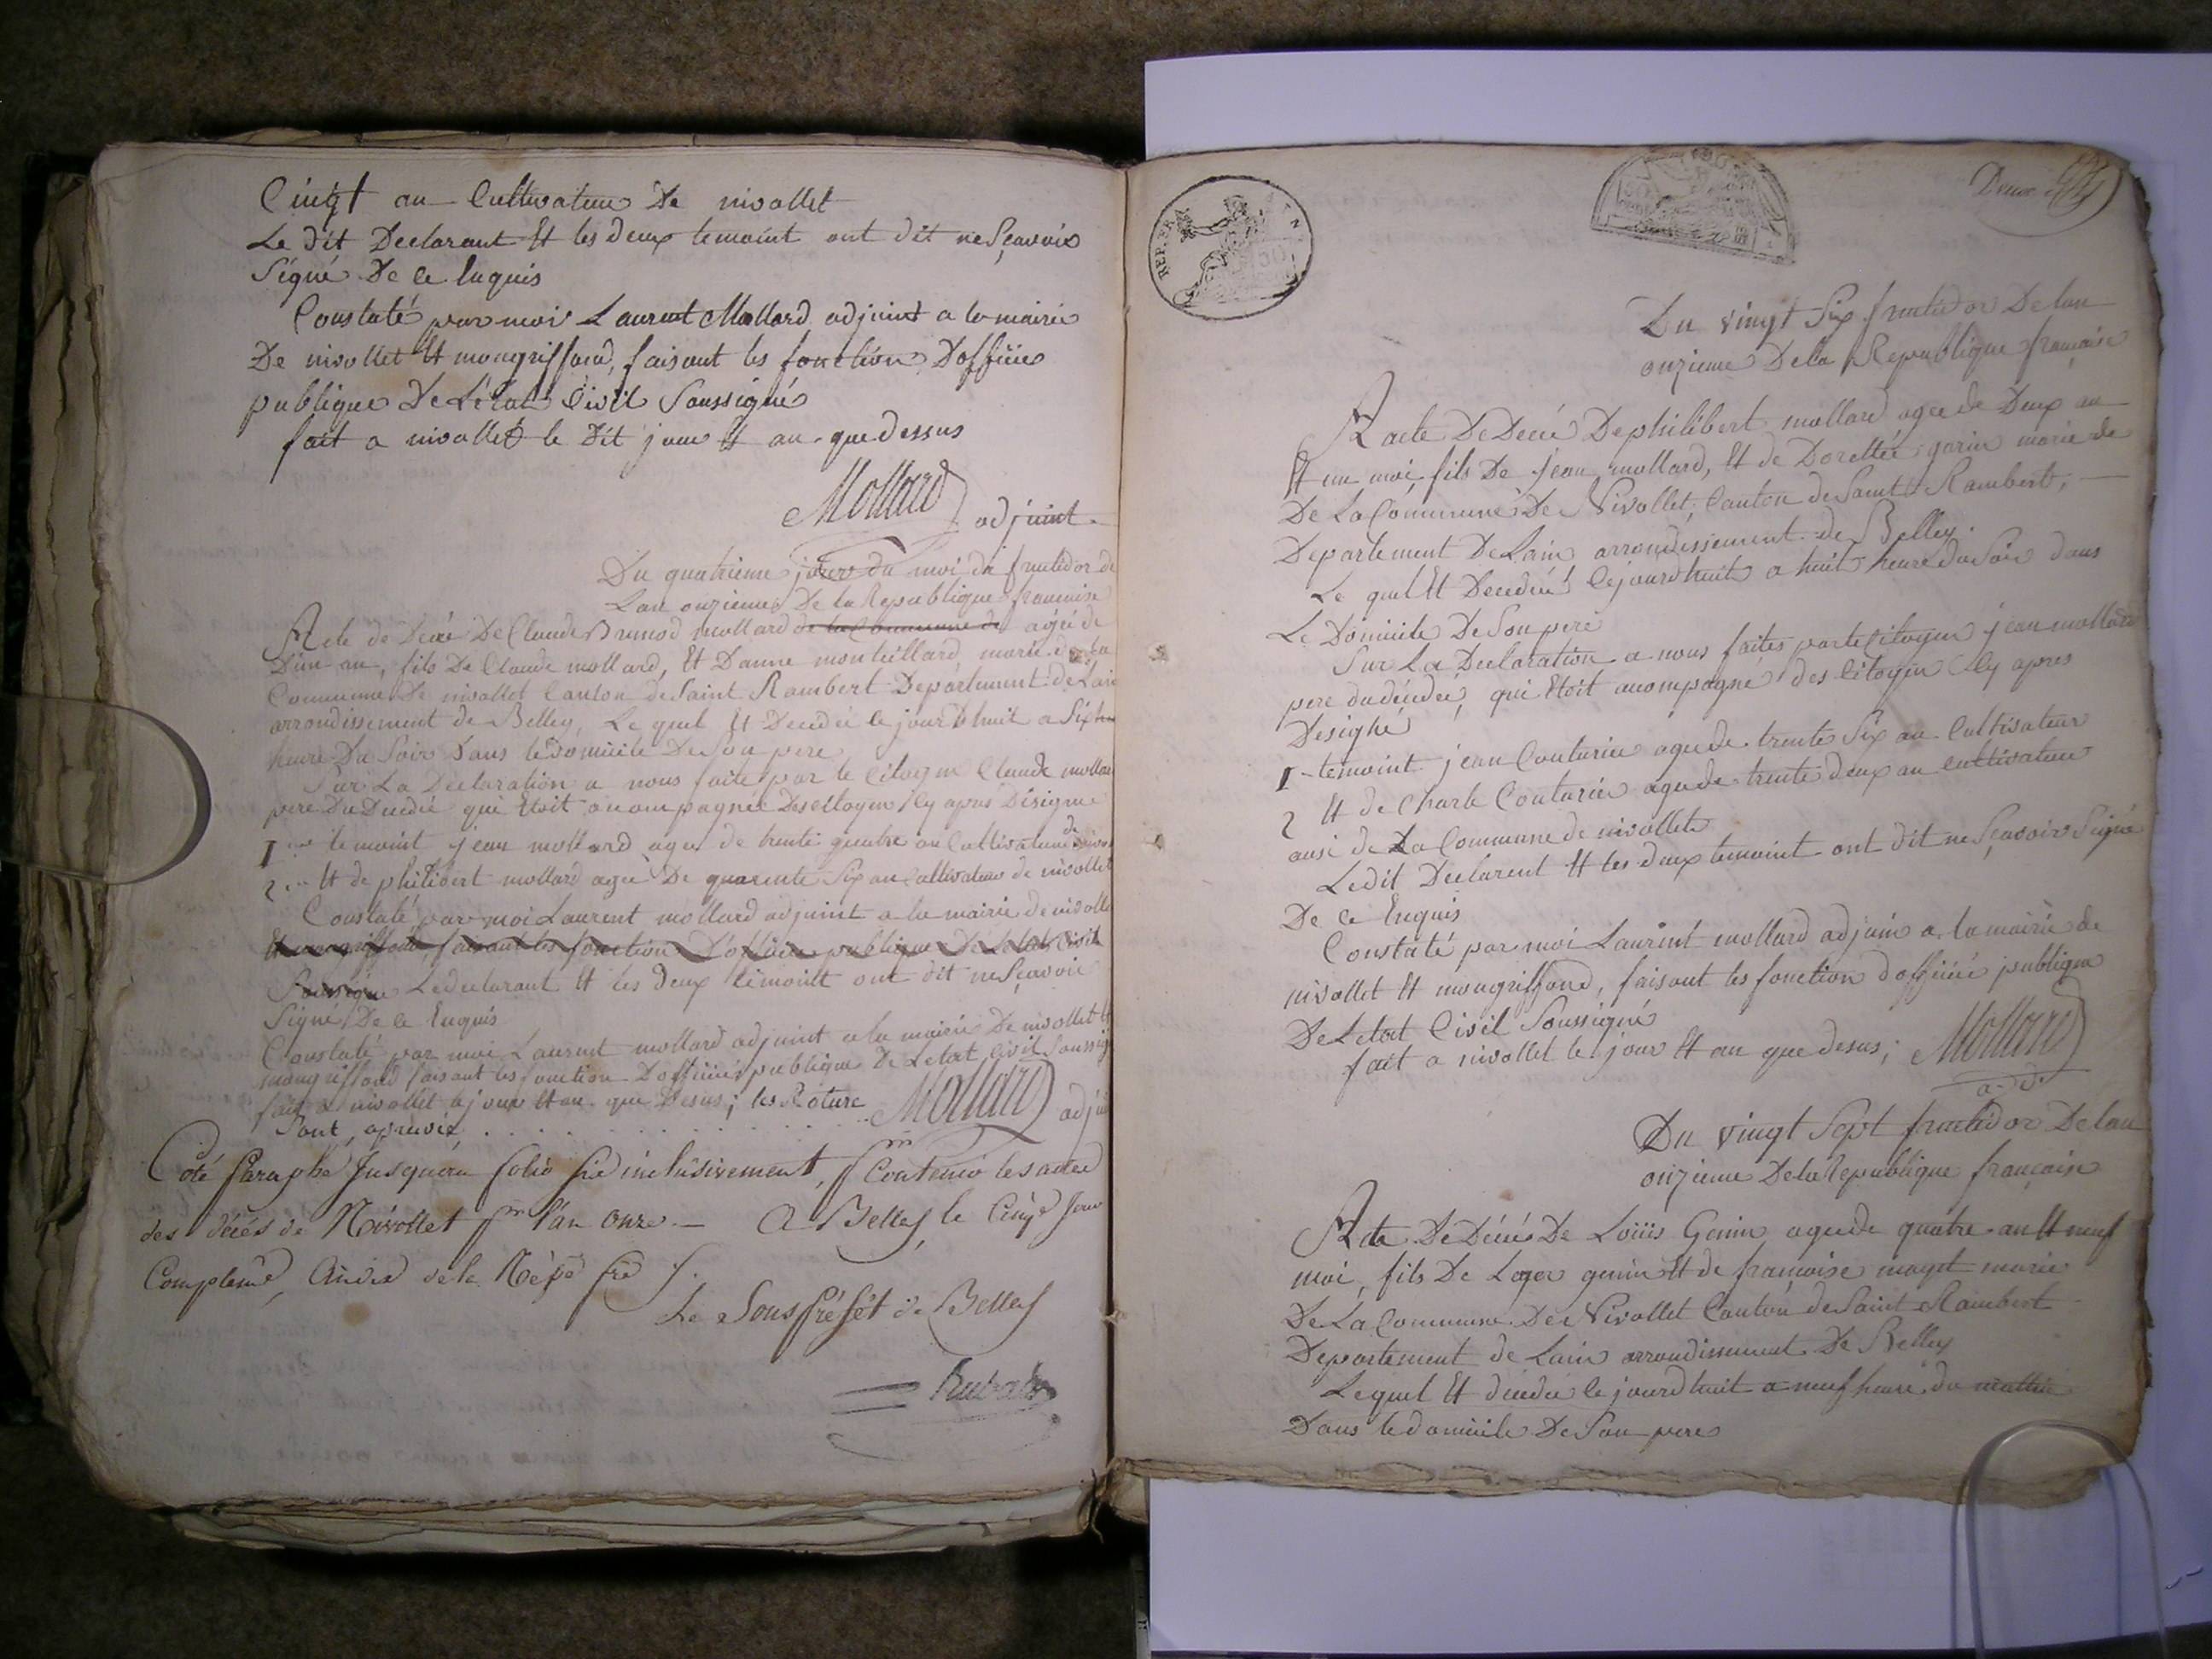 Cinqt an Cultivateur De nivollet
Le dit Declarant Et les deux temoint ont dit ne Scavoir
Signé De ce Enquis
Constaté par moi Laurent Mollard adjoint a la mairie
De nivollet Et mongriffond, faisant les fonction D'officie
publique De L'état Civil Soussigné
fait a nivollet le dit jour Et an que dessus
Mollard adjoint
Du quatrieme jour du moi du fructidor de
Lan onzieme De la Republique francaise
Acte de Decé De Claude Mollard de la Commune de agée de
D'un an, fils De Claude mollard, Et D'anne montillard marié de la
Commune De nivollet Canton de Saint Rambert Departement de Lain
arrondissement de Belley, Le quel Et Decedée ce jourd'huit a Six
heure Du Soir Dans le domicile De Son pere
Sur La Declaration a nous faite par le Citoyen Claude mollard
pere Du Decedé qui Etoit acompagnée Des Citoyen Cy apres Designe
1er temoint jean mollard agée de trente quatre an Cultivateur de
2 Et de philibert mollard agée De quarente Six an Cultivateur de nivollet
Constaté par moi Laurent mollard adjoint a la mairie de nivollet
Et mongriffond, faisant les fonction D'officie publique De Létat Civil
Soussigné Le declarant Et les deux temoint ont dit ne Scavoir
Signé De ce Enquis
Constaté par moi Laurent mollard adjoint a la mairie De nivollet Et
mongriffond faisant les fonction D'officie publique De Letat Civil Soussigné
fait a nivollet le jour Et an que Desus; les Roture
Sont apruvée Mollard adjoint
Coté Paraphé Jusqu'au folio inclusivement, pr Contenir les actes
des décés de Nivollet pr l'an Onze — A Belley le Cinq Jour
Complemre, An dix de la Répe fse
Le Sous Préfét de Belley
REP. FRA
Deux
Du vingt Six fructidor De lan
onzieme De la Republique francaise
Acte De Decé De philibert mollard agée de Deux an
Et un moi, fils De jean mollard, Et de Dorottée garin marié de
De La Commune De Nivollet, Canton de Saint Rambert,
Departement De Lain arrondissement de Belley.
Le quel Et Decedée Cejourd'huit a huit heure Du Soir dans
Le Domicile De Son pere
Sur La Declaration a nous faites par le Citoyen jean mollard
pere du décédée, qui Etoit acompagné des Citoyen Cy apres
Designé
1 temoint jean Couturier agée de trente Six an Cultivateur
2 Et de Charle Couturier agée de trente deux an cultivateur
ausi de La Commune de nivollet
Le dit Declarent Et les deux temoint ont dit ne Scavoir Signé
De ce Enquis
Constaté par moi Laurent mollard adjoin a la mairie de
nivollet Et mongriffond, faisant les fonction d'officie publique
De Letat Civil Soussigné
fait a nivollet le jour Et an que desus; Mollard
ad
Du vingt Sept fructidor De lan
onzieme De la Republique francaise
Acte De Décé De Loüis Genin agée de quatre an Et neuf
moi, fils De Leger genin Et de francoise mayet marié
De La Commune De Nivollet Canton de Saint Rambert
Departement de Lain arrondissement De Belley
Le quel Et décédée le jourd'huit a neuf heure du mattin
Dans le domicile De Son pere